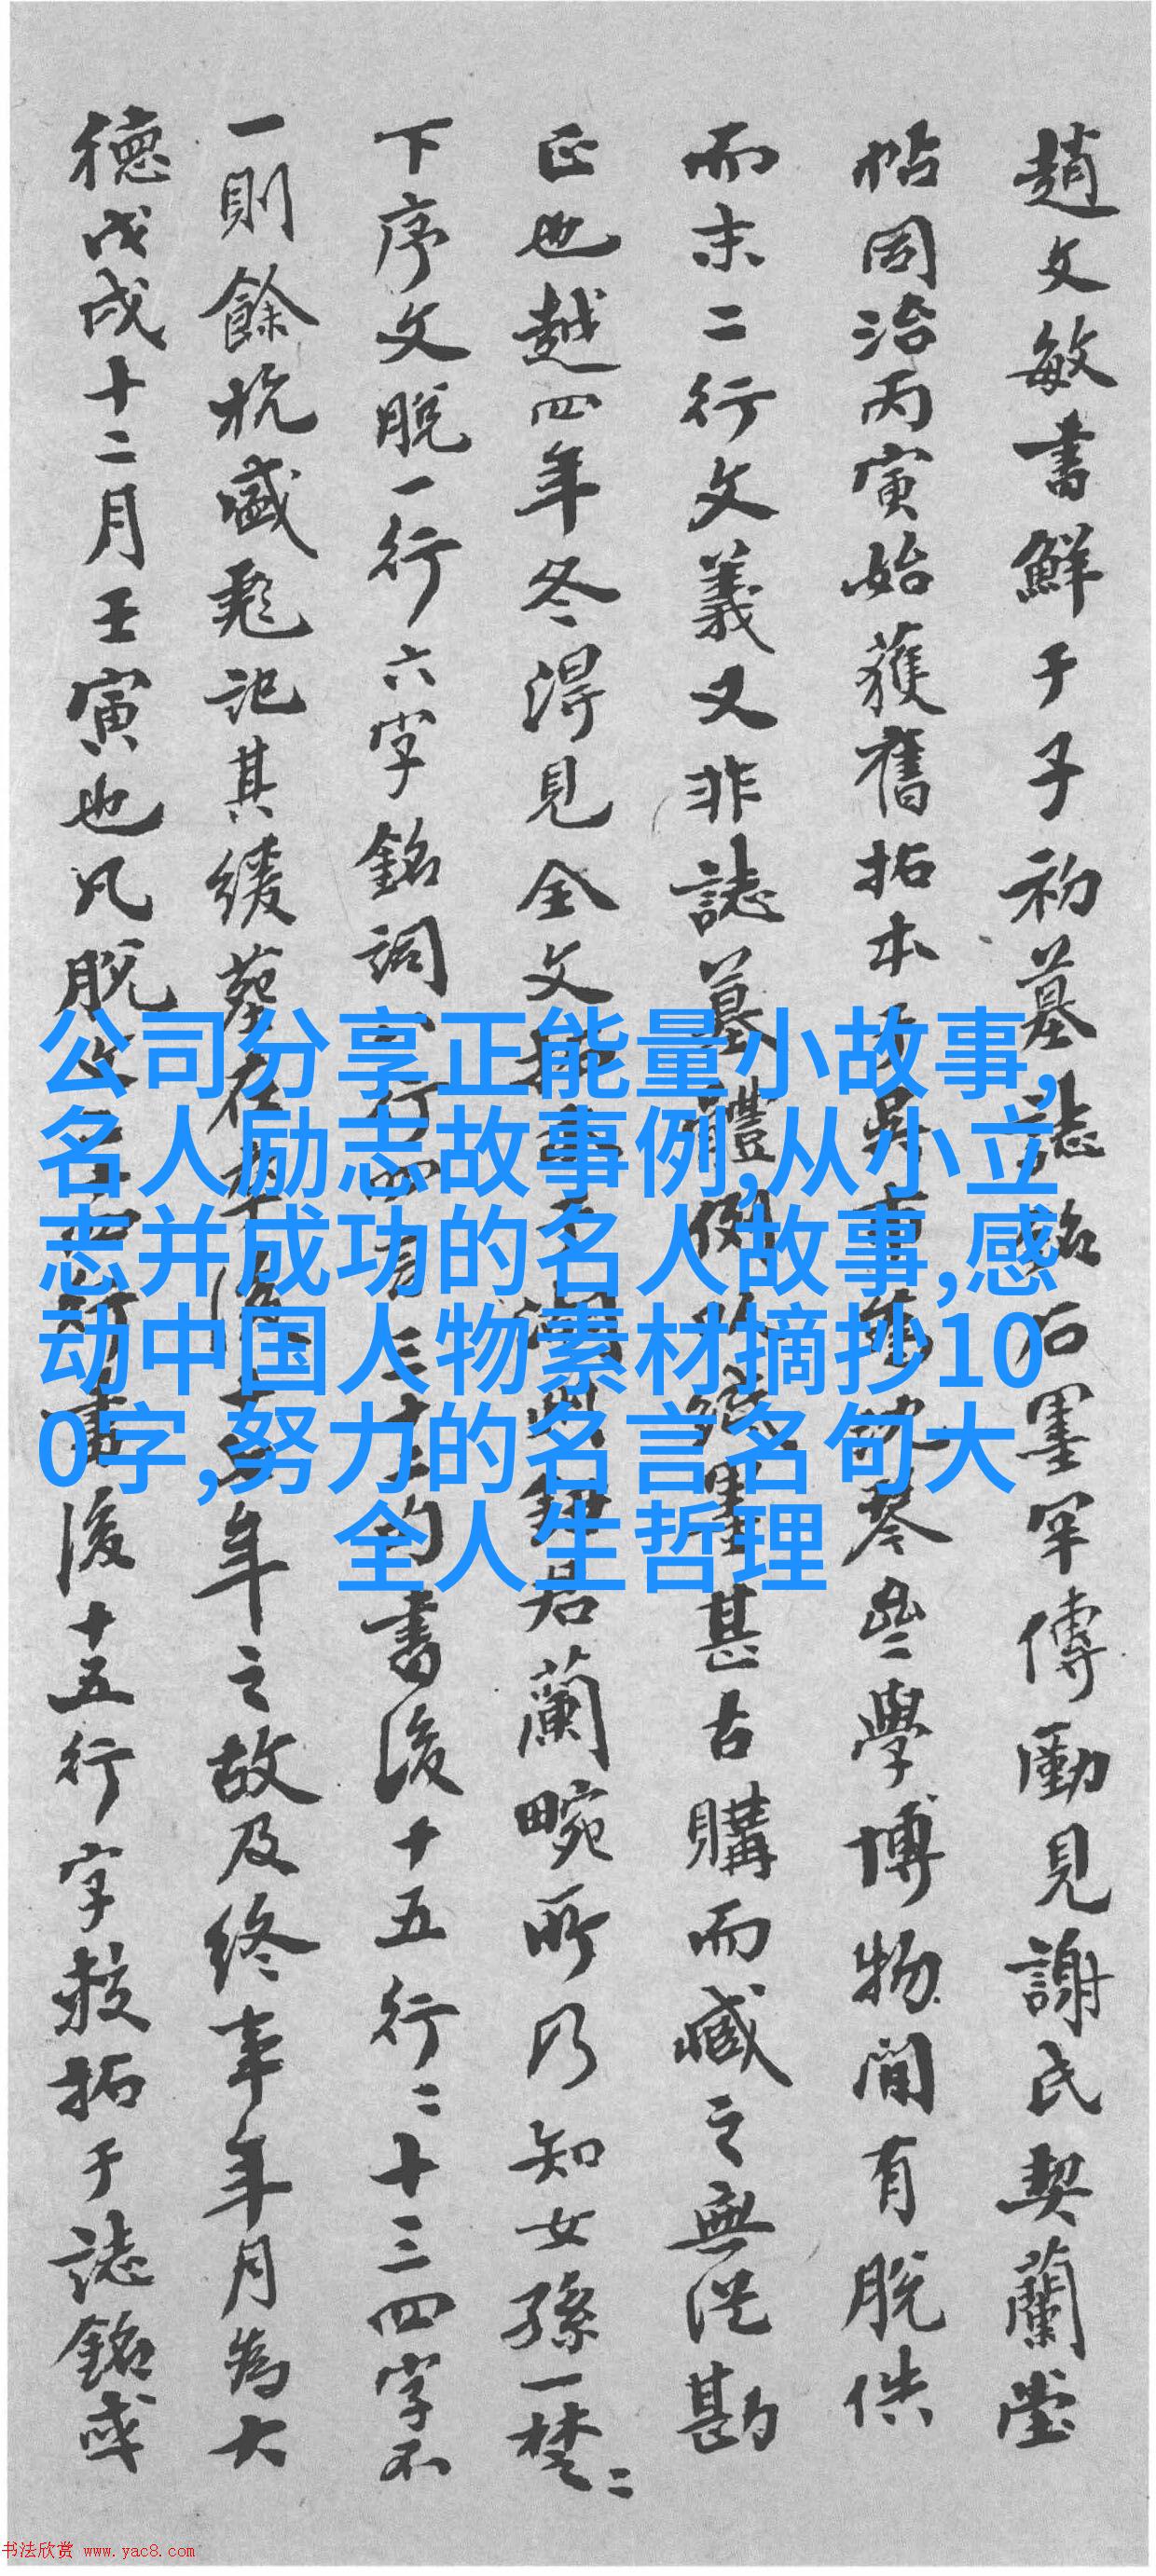 趙文敏書鮮于子初墓誌銘石墨罕傳勵見謝氏契蘭堂
帖同治丙寅始獲舊拓本琴學博物間有脫佚
而末二行文義又非誌墓體例墨甚古購而藏之無從勘
正也越四年冬得見全文君蘭畹所乃知女孫一楚二
下序文脫一行六字銘詞行四書後十五行二十三四字不
一則餘杭盛彪記其緩葬在年之故及終事年月為大
德戊戌十二月壬寅也凡脫書後十五行字救拓于誌銘或
公司分享正能量小故事,
名人励志故事例,从小立
志并成功的名人故事,感
动中国人物素材摘抄10
0字,努力的名言名句大
全人生哲理
书法欣赏 www.yac8.com